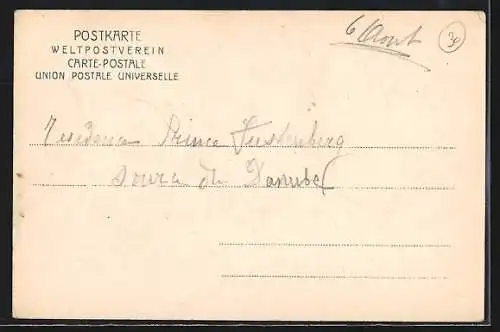 POSTKARTE
WELTPOSTVEREIN
CARTE-POSTALE
UNION POSTALE UNIVERSELLE
6 Aout
30
Prince Furstenberg
Source du Danube